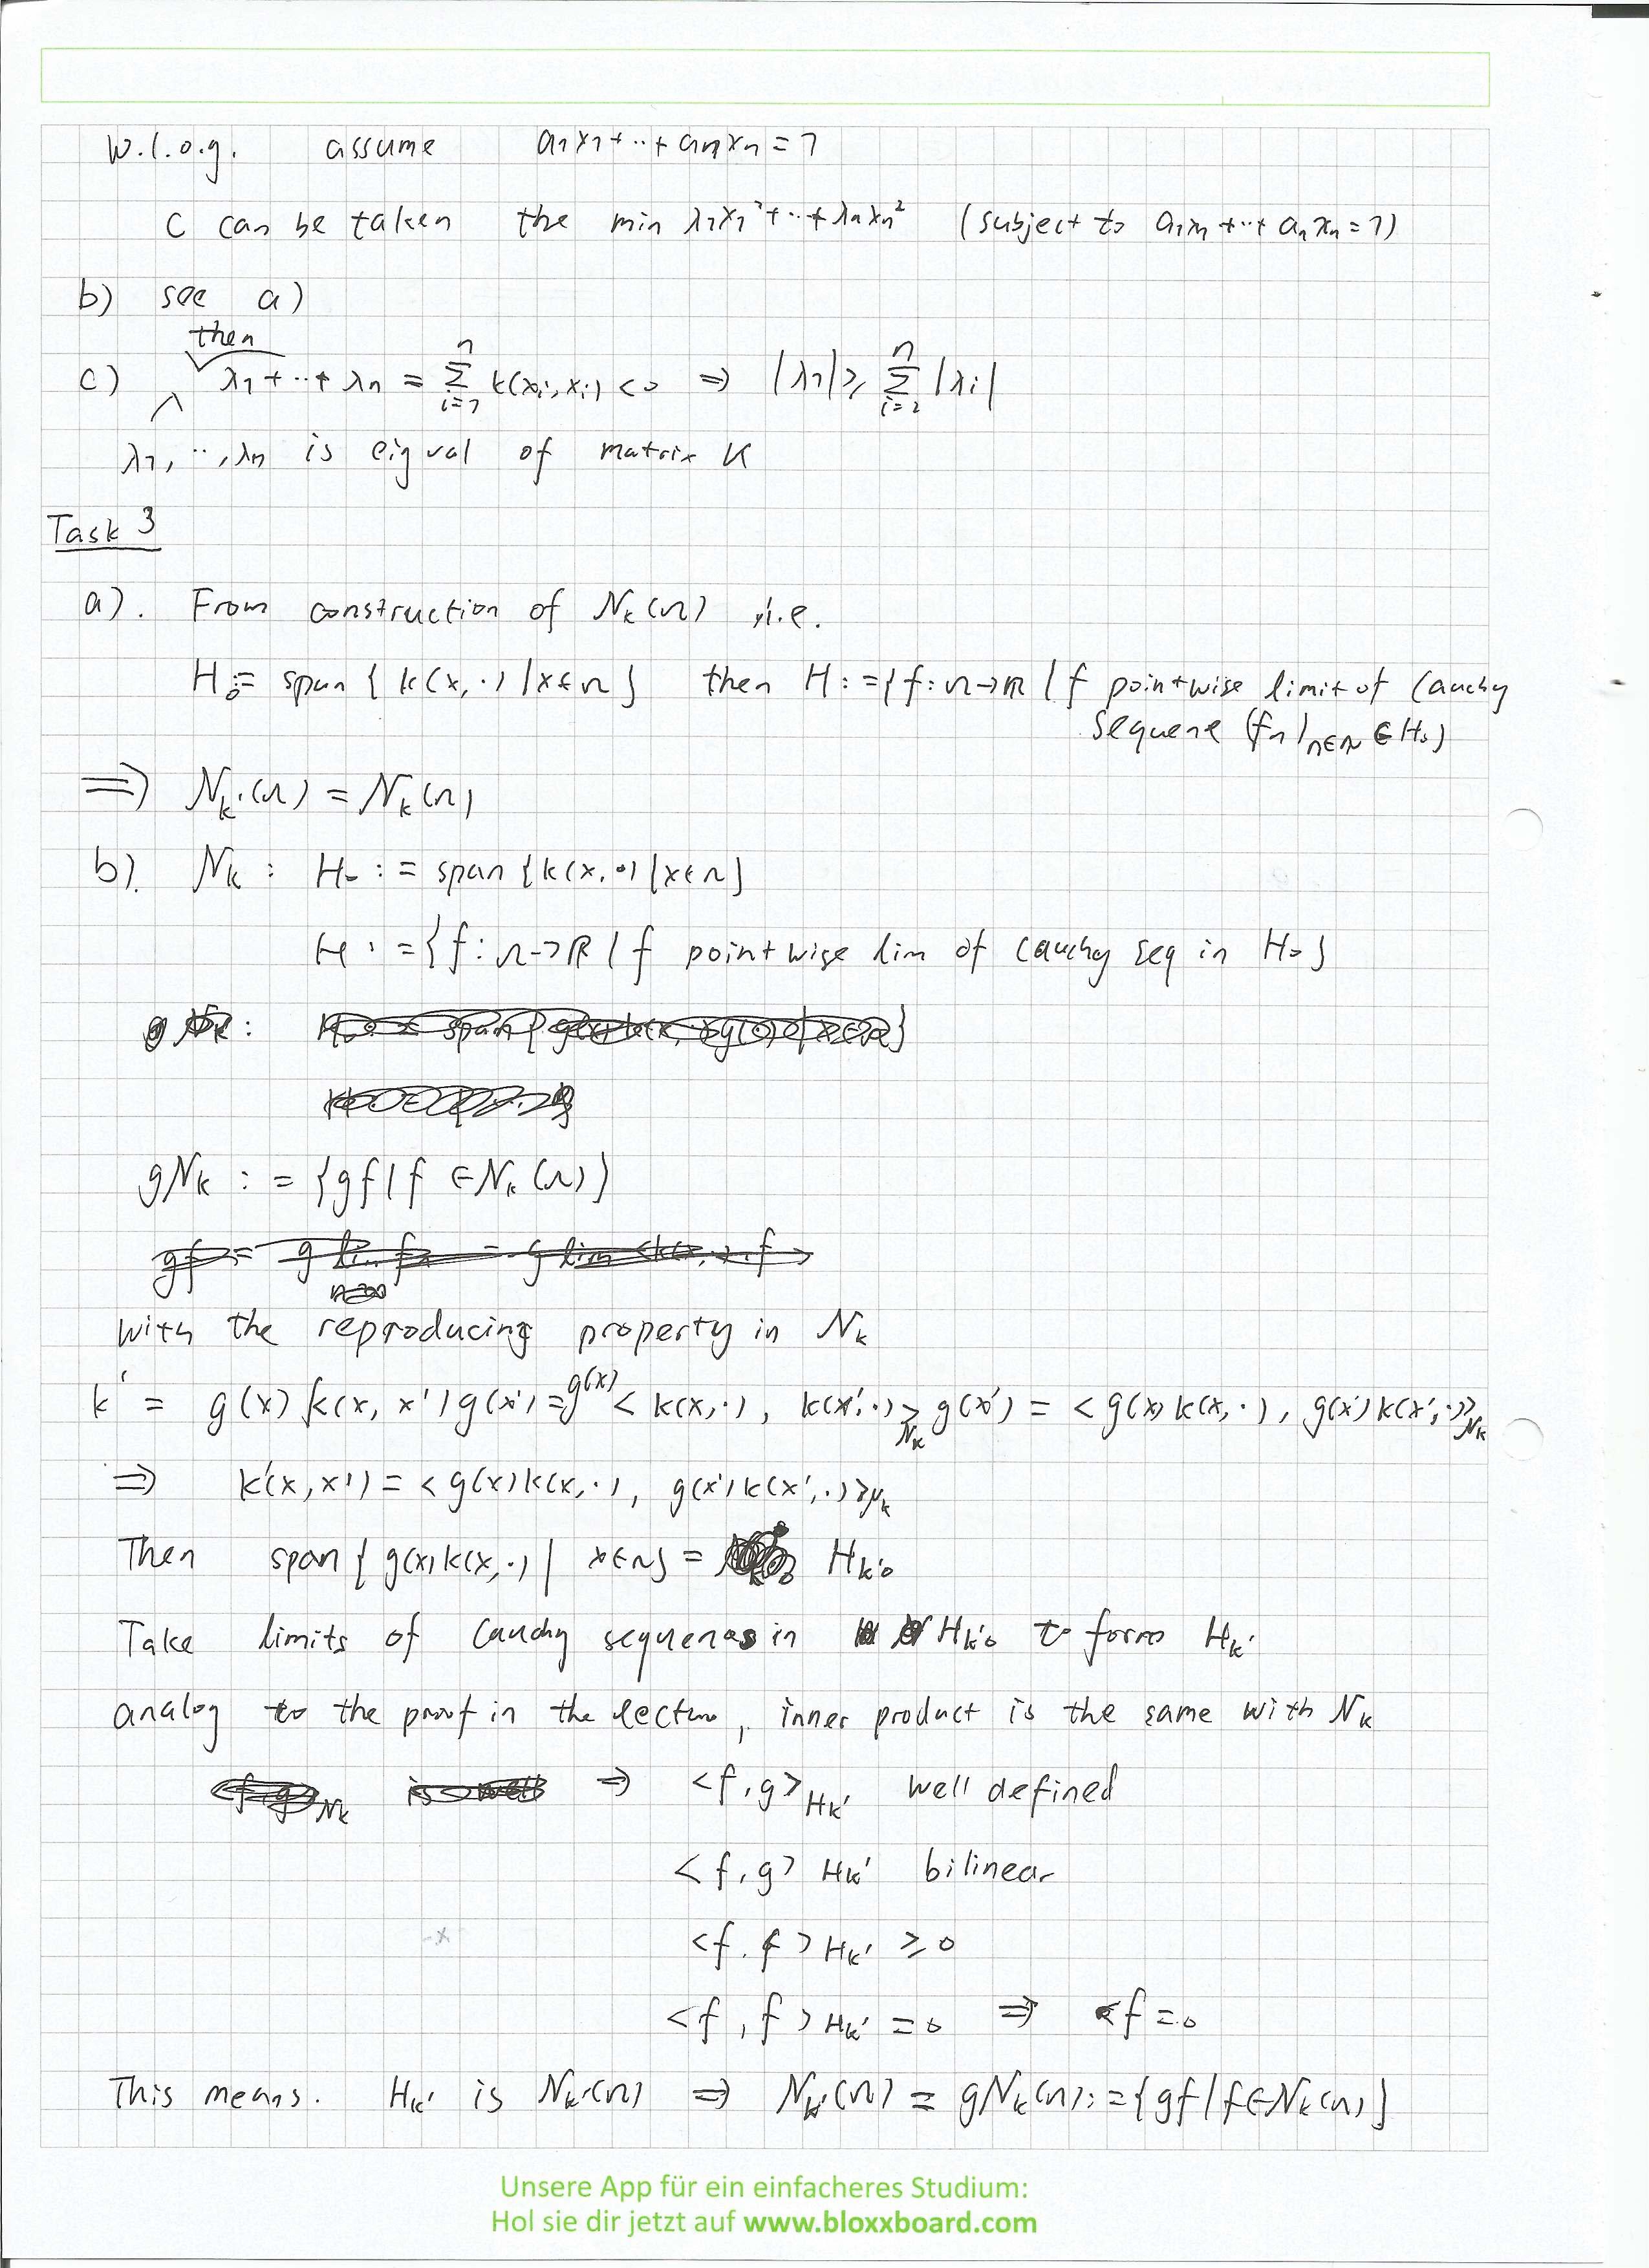 W.l.o.g. assume a₁x₁+··+aₙxₙ=1
C can be taken the min λ₁x₁²+··+λₙxₙ² (subject to a₁x₁+··+aₙxₙ=1)
b) see a)
then
c) λ₁+··+λₙ = Σ_{i=1}^{n} k(xᵢ,xᵢ)<0 ⇒ |λ₁|≥ Σ_{i=2}^{n} |λᵢ|
λ₁,··,λₙ is eigval of matrix K
Task 3
a). From construction of N_k(Ω) i.e.
H₀:= span{k(x,·)|x∈Ω} then H:={f:Ω→ℝ|f pointwise limit of Cauchy
Sequene (fₙ)_{n∈ℕ} ∈ H₀}
⇒ N_k'(Ω) = N_k(Ω)
b). N_k : H₀ := span{k(x,·)|x∈Ω}
H:={f:Ω→ℝ|f pointwise lim of Cauchy seq in H₀}
gN_k := {gf|f ∈N_k(Ω)}
With the reproducing property in N_k
k' = g(x)k(x,x')g(x') = g(x)<k(x,·), k(x',·)>_{N_k} g(x') = <g(x)k(x,·), g(x')k(x',·)>_{N_k}
⇒ k'(x,x') = <g(x)k(x,·), g(x')k(x',·)>_{N_k}
Then span{g(x)k(x,·)| x∈Ω} = H_{k'0}
Take limits of Cauchy sequences in H_{k'0} to form H_{k'}
analog to the proof in the lecture, inner product is the same with N_k
⇒ <f,g>_{H_k'} well defined
<f,g>_{H_k'} bilinear
<f,f>_{H_k'} ≥0
<f,f>_{H_k'} =0 ⇒ f=0
This means. H_k' is N_k'(Ω) ⇒ N_k'(Ω) = gN_k(Ω):={gf|f∈N_k(Ω)}
Unsere App für ein einfacheres Studium:
Hol sie dir jetzt auf www.bloxxboard.com